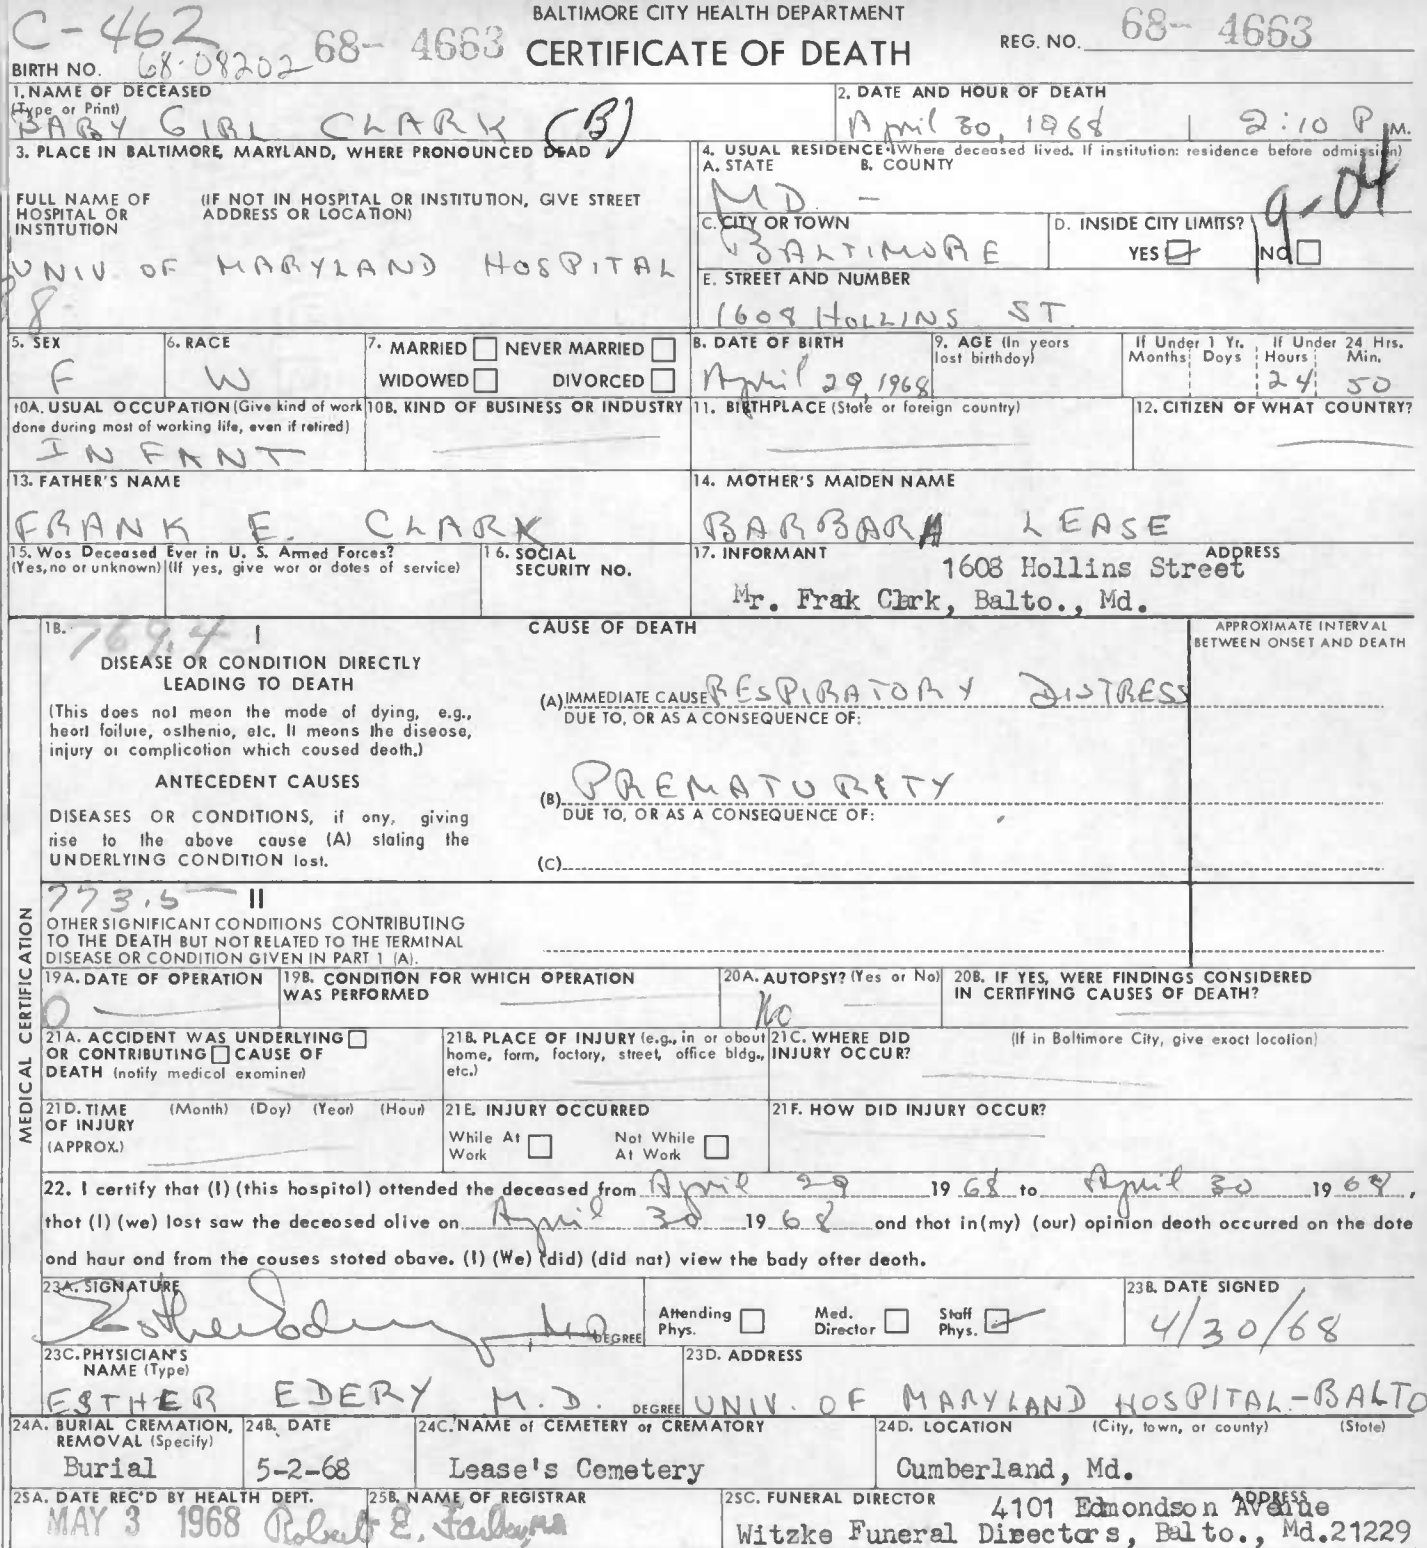 BALTIMORE CITY HEALTH DEPARTMENT
CERTIFICATE OF DEATH
C-462
BIRTH NO. 68-08202
68- 4663
REG. NO. 68- 4663
1. NAME OF DECEASED
(Type or Print)
BABY GIRL CLARK (B)
2. DATE AND HOUR OF DEATH
April 30, 1968 | 2:10 P M.
3. PLACE IN BALTIMORE, MARYLAND, WHERE PRONOUNCED DEAD
FULL NAME OF HOSPITAL OR INSTITUTION
(IF NOT IN HOSPITAL OR INSTITUTION, GIVE STREET ADDRESS OR LOCATION)
UNIV. OF MARYLAND HOSPITAL
4. USUAL RESIDENCE (Where deceased lived. If institution: residence before admission)
A. STATE B. COUNTY
MD. -
9-04
C. CITY OR TOWN
BALTIMORE
D. INSIDE CITY LIMITS?
YES NO
E. STREET AND NUMBER
1608 HOLLINS ST.
5. SEX
F
6. RACE
W
7. MARRIED NEVER MARRIED
WIDOWED DIVORCED
8. DATE OF BIRTH
April 29, 1968
9. AGE (In years lost birthday)
If Under 1 Yr. Months Days
If Under 24 Hrs. Hours Min.
24 50
10A. USUAL OCCUPATION (Give kind of work done during most of working life, even if retired)
INFANT
10B. KIND OF BUSINESS OR INDUSTRY
11. BIRTHPLACE (State or foreign country)
12. CITIZEN OF WHAT COUNTRY?
13. FATHER'S NAME
FRANK E. CLARK
14. MOTHER'S MAIDEN NAME
BARBARA LEASE
15. Was Deceased Ever in U. S. Armed Forces?
(Yes, no or unknown) (If yes, give war or dates of service)
16. SOCIAL SECURITY NO.
17. INFORMANT ADDRESS
1608 Hollins Street
Mr. Frak Clark, Balto., Md.
18. 769.4 I
CAUSE OF DEATH
APPROXIMATE INTERVAL BETWEEN ONSET AND DEATH
DISEASE OR CONDITION DIRECTLY LEADING TO DEATH
(This does not mean the mode of dying, e.g., heart failure, asthenia, etc. It means the disease, injury or complication which caused death.)
(A) IMMEDIATE CAUSE RESPIRATORY DISTRESS
DUE TO, OR AS A CONSEQUENCE OF:
ANTECEDENT CAUSES
DISEASES OR CONDITIONS, if any, giving rise to the above cause (A) stating the UNDERLYING CONDITION last.
(B) PREMATURITY
DUE TO, OR AS A CONSEQUENCE OF:
(C)
773.5 II
OTHER SIGNIFICANT CONDITIONS CONTRIBUTING TO THE DEATH BUT NOT RELATED TO THE TERMINAL DISEASE OR CONDITION GIVEN IN PART 1 (A).
MEDICAL CERTIFICATION
19A. DATE OF OPERATION
0
19B. CONDITION FOR WHICH OPERATION WAS PERFORMED
20A. AUTOPSY? (Yes or No)
No
20B. IF YES, WERE FINDINGS CONSIDERED IN CERTIFYING CAUSES OF DEATH?
21A. ACCIDENT WAS UNDERLYING OR CONTRIBUTING CAUSE OF DEATH (notify medical examiner)
21B. PLACE OF INJURY (e.g., in or about home, farm, factory, street, office bldg., etc.)
21C. WHERE DID INJURY OCCUR?
(If in Baltimore City, give exact location)
21D. TIME OF INJURY (APPROX.)
(Month) (Day) (Year) (Hour)
21E. INJURY OCCURRED
While At Work Not While At Work
21F. HOW DID INJURY OCCUR?
22. I certify that (I) (this hospital) attended the deceased from April 29 1968 to April 30 1968,
that (I) (we) last saw the deceased alive on April 30 1968 and that in (my) (our) opinion death occurred on the date
and hour and from the causes stated above. (I) (We) (did) (did not) view the body after death.
23A. SIGNATURE
Esther Edery MD DEGREE
Attending Phys. Med. Director Staff Phys.
23B. DATE SIGNED
4/30/68
23C. PHYSICIAN'S NAME (Type)
ESTHER EDERY M.D. DEGREE
23D. ADDRESS
UNIV. OF MARYLAND HOSPITAL-BALTO
24A. BURIAL CREMATION, REMOVAL (Specify)
Burial
24B. DATE
5-2-68
24C. NAME of CEMETERY or CREMATORY
Lease's Cemetery
24D. LOCATION (City, town, or county) (State)
Cumberland, Md.
25A. DATE REC'D BY HEALTH DEPT.
MAY 3 1968
25B. NAME OF REGISTRAR
Robert E. Farber, M.D.
25C. FUNERAL DIRECTOR ADDRESS
4101 Edmondson Avenue
Witzke Funeral Directors, Balto., Md. 21229